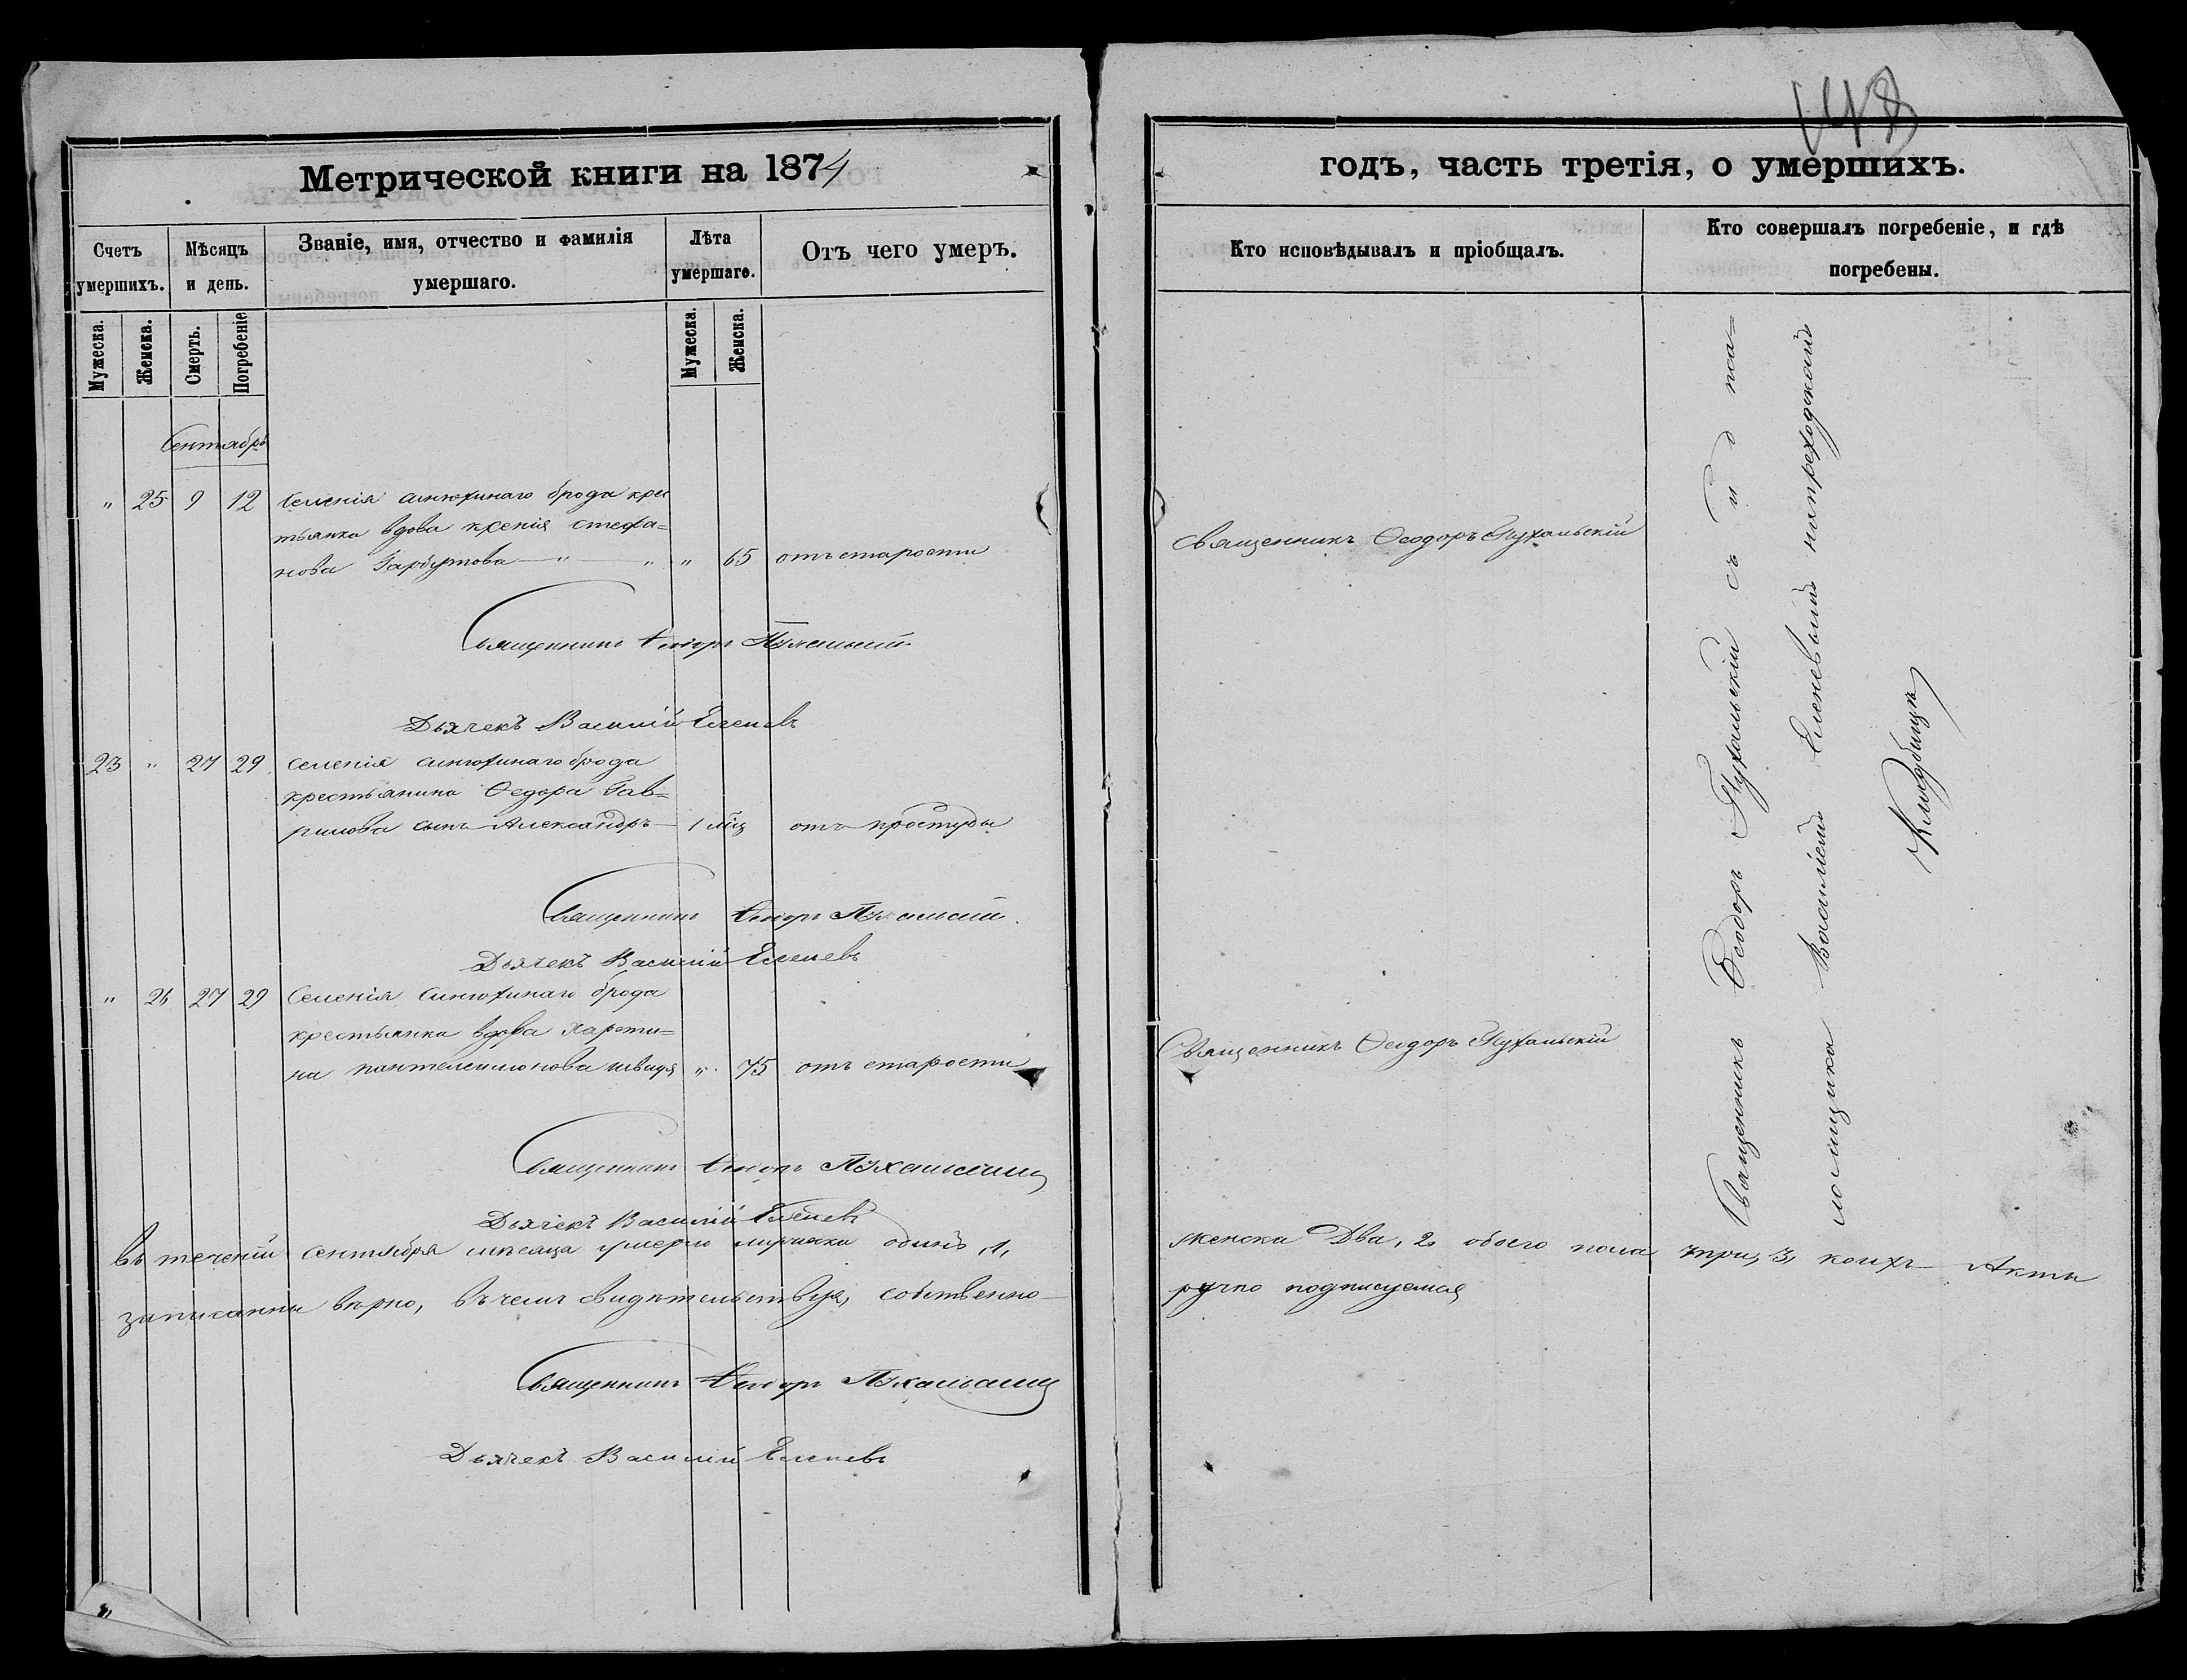 148
Метрической книги на 1874
годъ, часть третія, о умершихъ.
Счетъ умершихъ.
Мѣсяцъ и день.
Званіе, имя, отчество и фамилія умершаго.
Лѣта умершаго.
Отъ чего умеръ.
Кто исповѣдывалъ и пріобщалъ.
Кто совершалъ погребеніе, и гдѣ погребены.
Мужеска.
Женска.
Смерть.
Погребеніе
Мужеска.
Женска.
Сентябрь
" 25 9 12 Селенія синюхинаго брода крес
тьянка вдова ксенія стефа=
нова Гарбузова " " " 65 отъ старости
Священникъ Ѳеодоръ Пухальскій
Священникъ Ѳеодоръ Пухальскій
Дьячекъ Василій Еленевъ
23 " 27 29 Селенія синюхинаго брода
крестьянина Ѳедора Гав=
рилова сынъ Александръ 1 мц отъ простуды
Священникъ Ѳеодоръ Пухальскій
Дьячекъ Василій Еленевъ
" 26 27 29 Селенія синюхинаго брода
крестьянка вдова Харети=
на пантелеимонова " 75 отъ старости
Священникъ Ѳеодоръ Пухальскій
Священникъ Ѳеодоръ Пухальскій
Дьячекъ Василій Еленевъ
Въ теченіи сентября мѣсяца умерло мужеска одинъ, 1, женска Два, 2, обоего пола три, 3, коихъ Акты
записанны вѣрно, въ чемъ свидѣтельствуя, собственно
ручно подписуемся
Священникъ Ѳеодоръ Пухальскій
Дьячекъ Василій Еленевъ
Священникъ Ѳеодоръ Пухальскій съ и д пса=
ломщика Василіемъ Еленевымъ на приходскомъ
Кладбищѣ